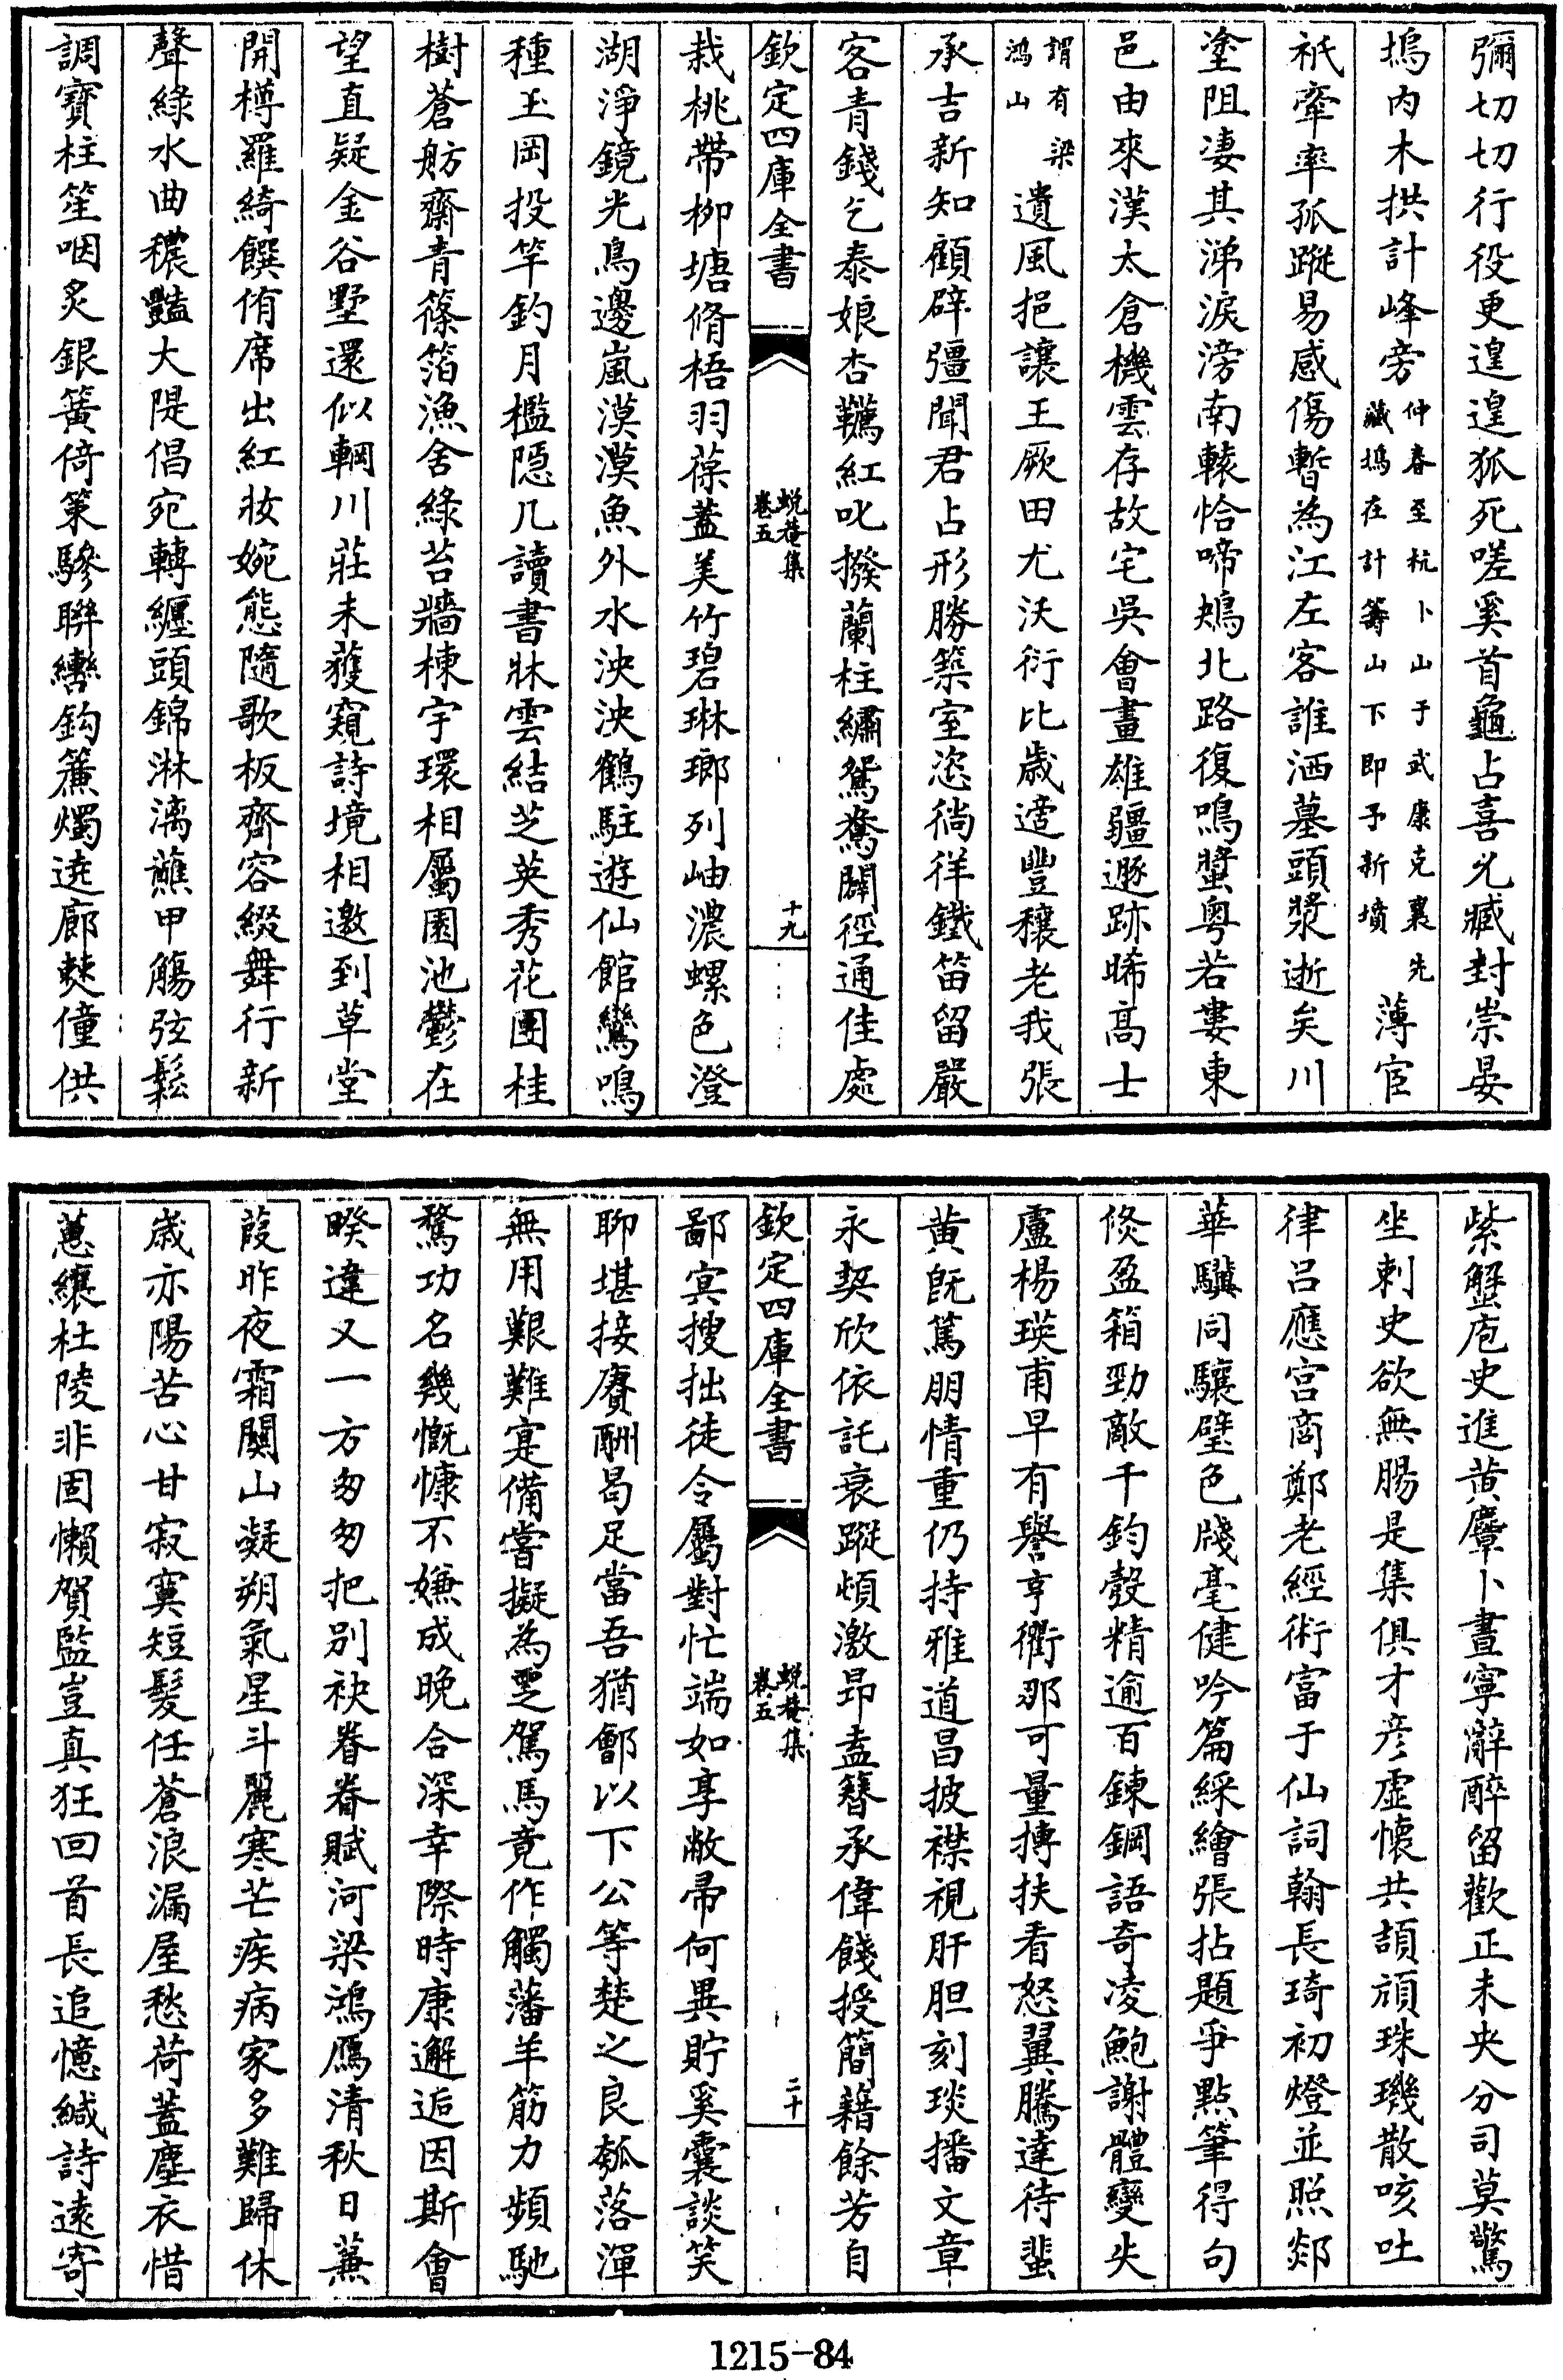 彌切切行役更遑遑狐死嗟奚首龜占喜允臧封崇晏
塢內木拱計峰旁仲春至杭卜山于武康克襄先
藏塢在計籌山下即予新墳薄宦
祇牽率孤蹤易感傷暫為江左客誰洒墓頭漿逝矣川
塗阻淒其涕淚滂南轅恰啼鴂北路復鳴螿粵若婁東
邑由來漢太倉機雲存故宅吳會畫雄疆遯跡晞高士
謂有梁
鴻山遺風挹讓王厥田尤沃衍比歲適豐穰老我張
承吉新知顧辟彊聞君占形勝築室恣徜徉鐵笛留嚴
客青錢乞泰娘杏韉紅叱撥蘭柱繡鴛鴦闢徑通佳處
欽定四庫全書
蛻菴集
卷五
十九
栽桃帶柳塘脩梧羽葆蓋美竹碧琳瑯列岫濃螺色澄
湖淨鏡光鳥邊嵐漠漠魚外水泱泱鶴駐遊仙館鸞鳴
種玉岡投竿釣月檻隱几讀書牀雲結芝英秀花團桂
樹蒼舫齋青篠箔漁舍綠苔牆棟宇環相屬園池鬱在
望直疑金谷墅還似輞川莊未獲窺詩境相邀到草堂
開樽羅綺饌侑席出紅妝婉態隨歌板齊容綴舞行新
聲綠水曲穠豔大隄倡宛轉纏頭錦淋漓蘸甲觴弦鬆
調寶柱笙咽炙銀簧倚策驂聯轡鈎簾燭遶廊㷀僮供
紫蟹庖史進黃麞卜晝寧辭醉留歡正未央分司莫驚
坐刺史欲無腸是集俱才彥虛懷共頡頏珠璣散咳吐
律呂應宮商鄭老經術富于仙詞翰長琦初燈並照郯
華驥同驤璧色牋毫健吟篇綵繪張拈題爭點筆得句
倐盈箱勁敵千鈞彀精逾百鍊鋼語奇凌鮑謝體變失
盧楊瑛甫早有譽亨衢那可量摶扶看怒翼騰達待蜚
黃既篤朋情重仍持雅道昌披襟視肝胆刻琰播文章
永契欣依託衰蹤頓激昂盍簪承偉餞授簡藉餘芳自
欽定四庫全書
蛻菴集
卷五
二十
鄙冥搜拙徒令屬對忙端如享敝帚何異貯奚囊談笑
聊堪接賡酬曷足當吾猶鄶以下公等楚之良瓠落渾
無用艱難寔備嘗擬為䡖駕馬竟作觸藩羊筋力頻馳
騖功名幾慨慷不嫌成晚合深幸際時康邂逅因斯會
睽違又一方匆匆把別袂眷眷賦河梁鴻鴈清秋日蒹
葭昨夜霜關山凝朔氣星斗麗寒芒疾病家多難歸休
歲亦陽苦心甘寂寞短髮任蒼浪漏屋愁荷蓋塵衣惜
蕙纕杜陵非固懶賀監豈真狂回首長追憶緘詩遠寄
1215-84